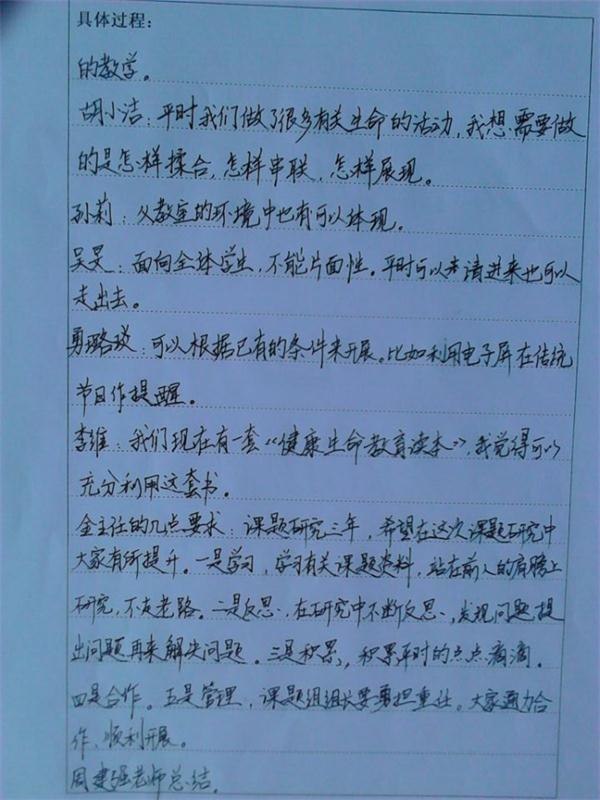 具体过程：
的教学。
胡小洁：平时我们做了很多有关生命的活动，我想需要做
的是怎样揉合，怎样串联，怎样展现。
孙莉：教室的环境中也有可以体现。
吴昊：面向全体学生，不能片面性。平时可以请进来也可以
走出去。
勇璐琰：可以根据已有的条件来开展。比如利用电子屏在传统
节日作提醒。
李维：我们现在有一套《健康生命教育读本》，我觉得可以
充分利用这套书。
金主任的几点要求：课题研究三年，希望在这次课题研究中
大家有所提升。一是学习，学习有关课题资料，站在前人的肩膀上
研究，不走老路。二是反思，在研究中不断反思，发现问题提
出问题再来解决问题。三是积累，积累平时的点点滴滴。
四是合作。五是管理，课题组组长要勇担重任。大家通力合
作、顺利开展。
周建强老师总结。